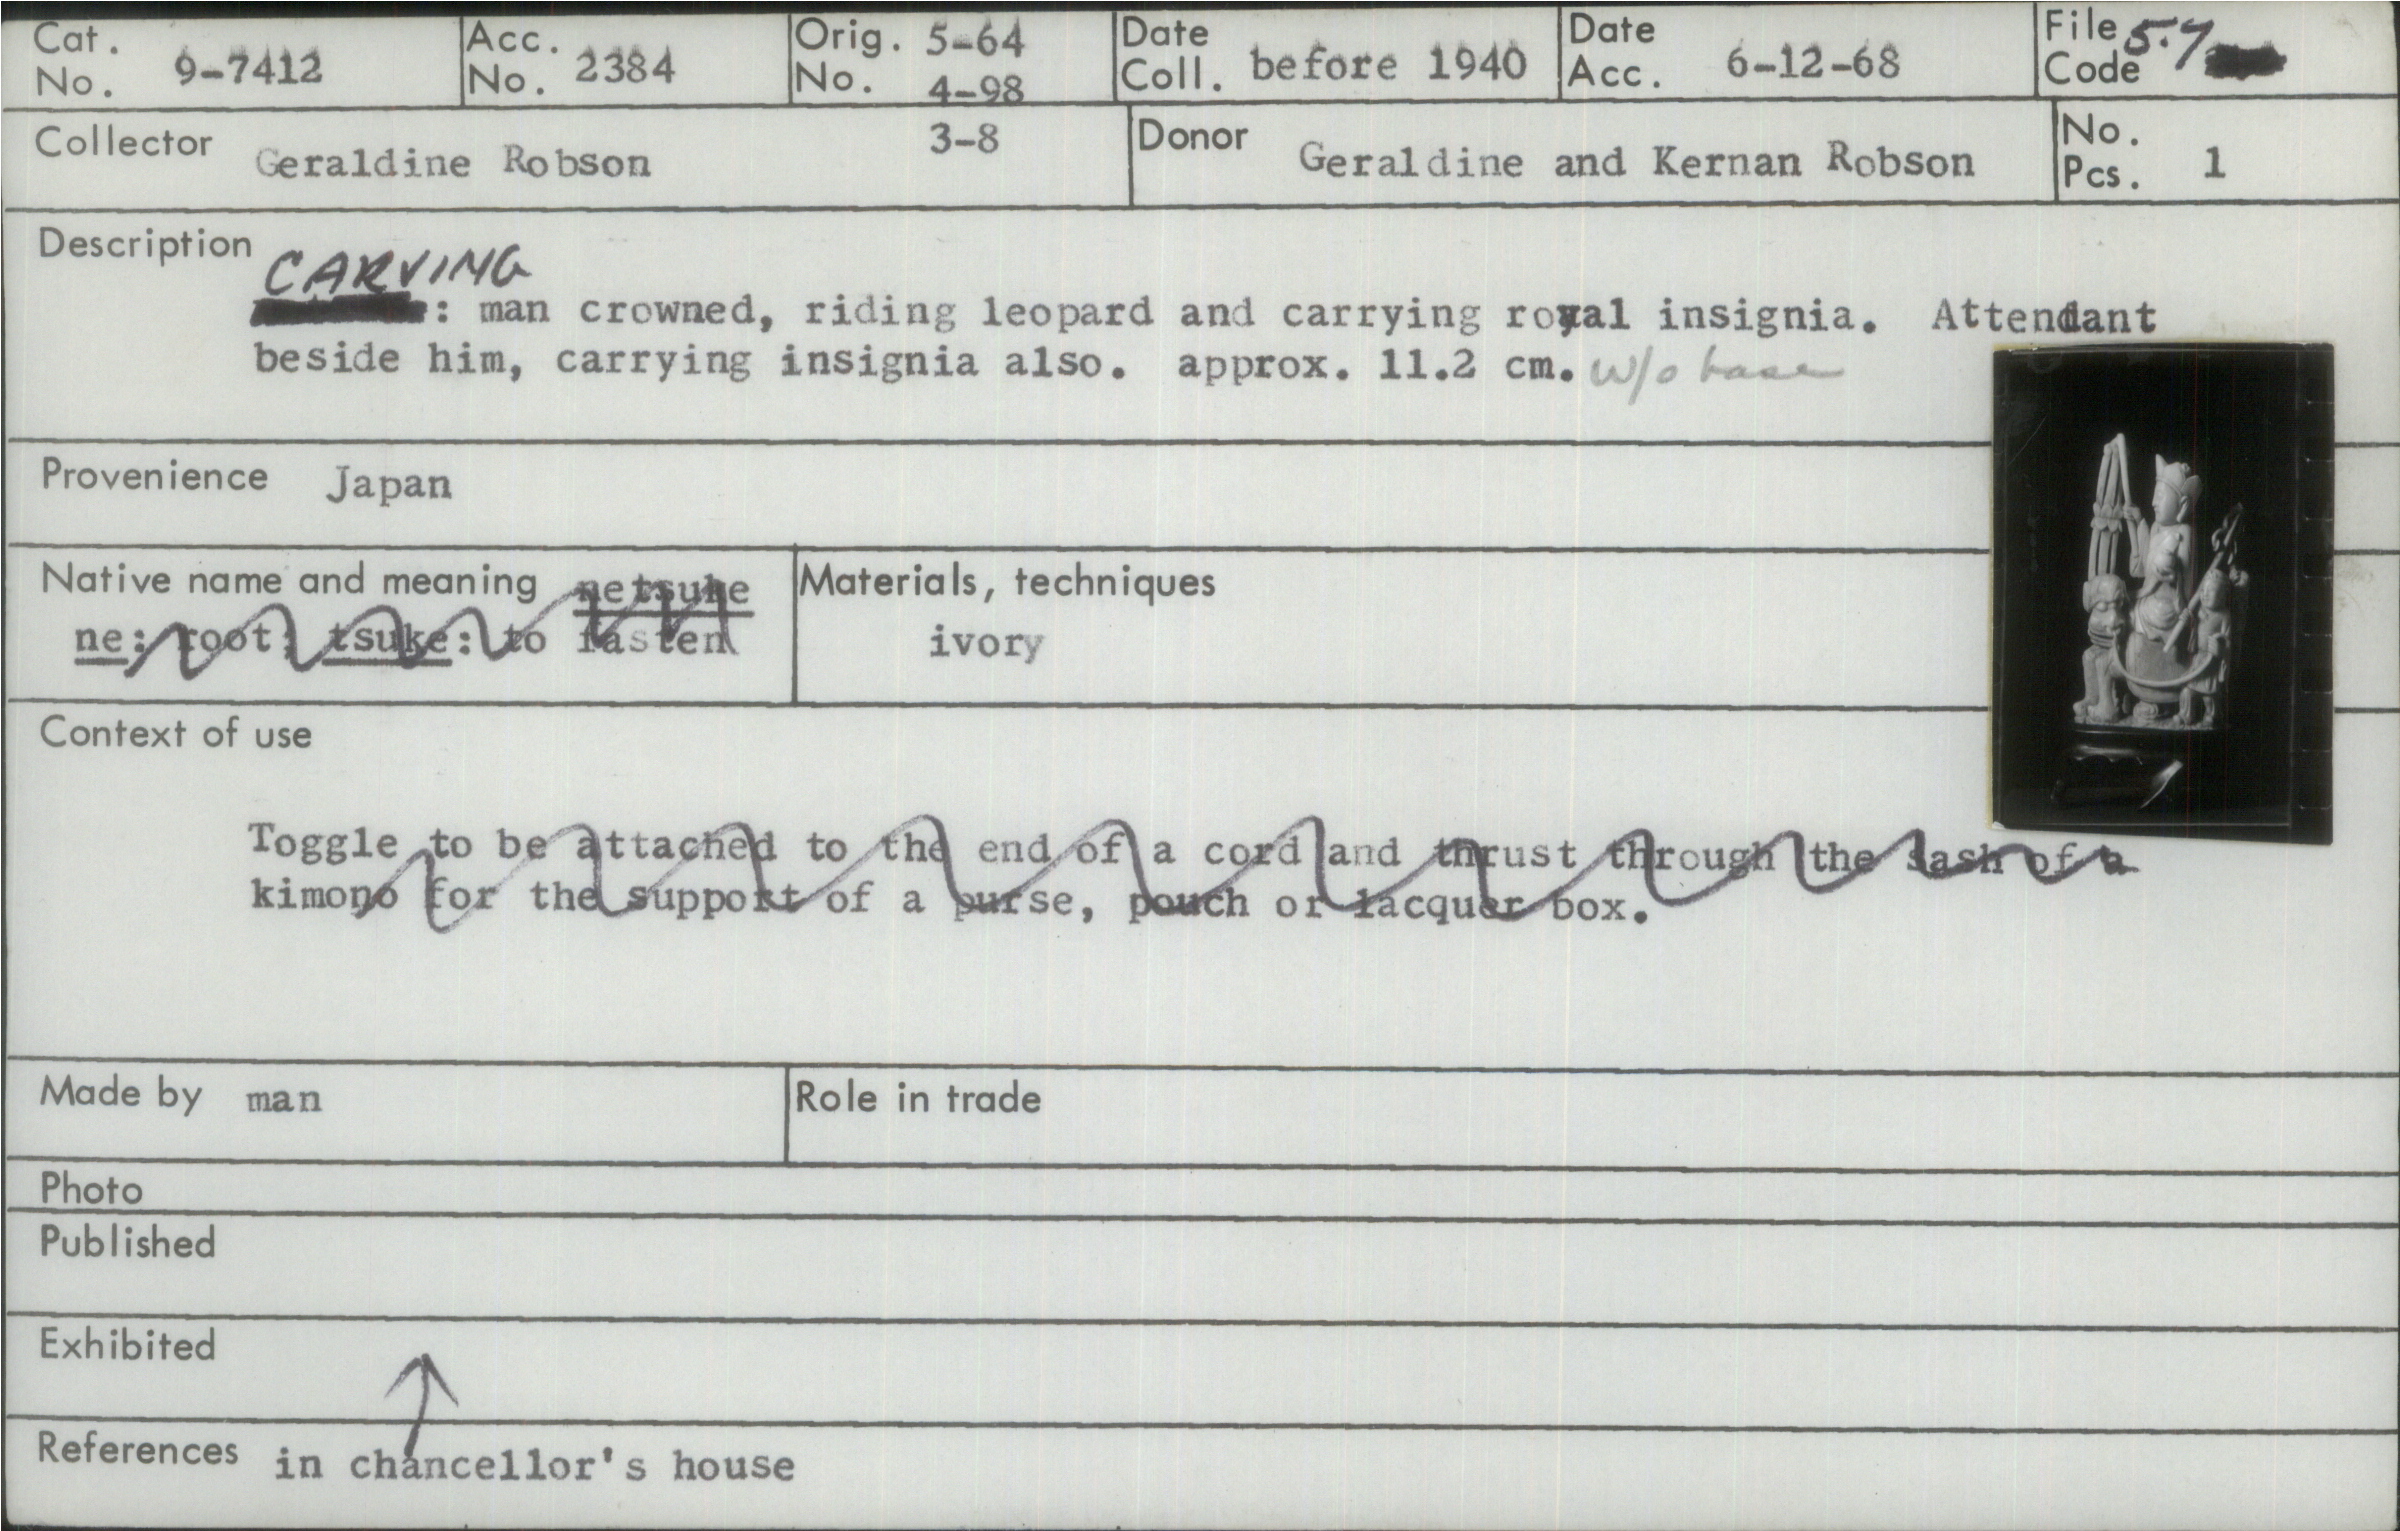 Cat. No. 9-7412
Acc. No. 2384
Orig. No. 5-64
4-98
3-8
Date Coll. before 1940
Date Acc. 6-12-68
File Code 5.7
Collector Geraldine Robson
Donor Geraldine and Kernan Robson
No. Pcs. 1
Description
CARVING
: man crowned, riding leopard and carrying royal insignia. Attendant
beside him, carrying insignia also. approx. 11.2 cm. w/o base
Provenience Japan
Native name and meaning netsuke
ne: root; tsuke: to fasten
Materials, techniques
ivory
Context of use
Toggle to be attached to the end of a cord and thrust through the sash of a
kimono for the support of a purse, pouch or lacquer box.
Made by man
Role in trade
Photo
Published
Exhibited
References in chancellor's house